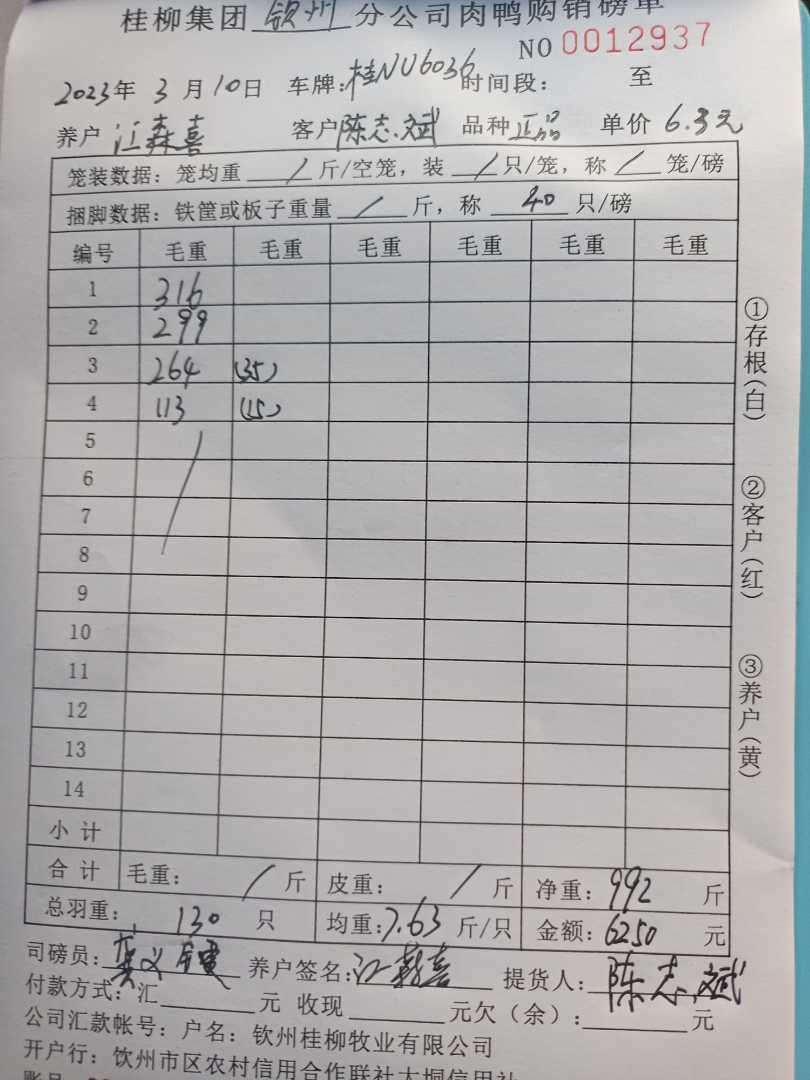 桂柳集团 钦州 分公司肉鸭购销磅单
NO 0012937
2023年 3月10日 车牌:桂NU6036 时间段: 至
养户 江森喜 客户 陈志斌 品种 正品 单价 6.3元
笼装数据: 笼均重 / 斤/空笼, 装 / 只/笼, 称 / 笼/磅
捆脚数据: 铁筐或板子重量 / 斤, 称 40 只/磅
编号 毛重 毛重 毛重 毛重 毛重 毛重
1 316
2 299
3 264 (35)
4 113 (15)
5
6
7
8
9
10
11
12
13
14
小计
合计 毛重: / 斤 皮重: / 斤 净重: 992 斤
总羽重: 130 只 均重: 7.63 斤/只 金额: 6250 元
司磅员: 养户签名: 江森喜 提货人: 陈志斌
付款方式: 汇 元 收现 元欠(余): 元
公司汇款帐号: 户名: 钦州桂柳牧业有限公司
开户行: 钦州市区农村信用合作联社大垌信用社
①存根(白)
②客户(红)
③养户(黄)